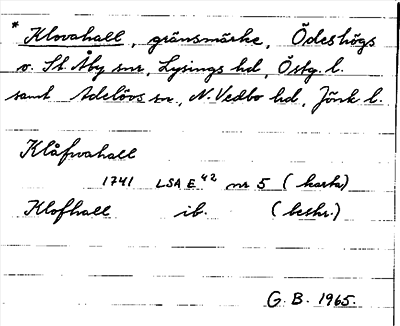 * Klovahall, gränsmärke, Ödeshögs
o. St. Åby snr, Lysings hd, Östg. l.
samt Adelövs sn, N. Vedbo hd, Jönk l.
Klåfwahall
1741 LSA E 42 nr 5 (karta)
Klofhall ib. (beskr.)
G. B. 1965.